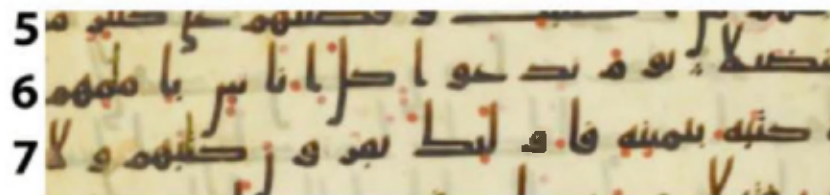 5 و فضلنهم على كثير م
6 تفضيلا يو م ند عو ا كل ا نا س با ممهم
7 كتبه بيمينه فا و لیک يقر و ن كتبهم و لا